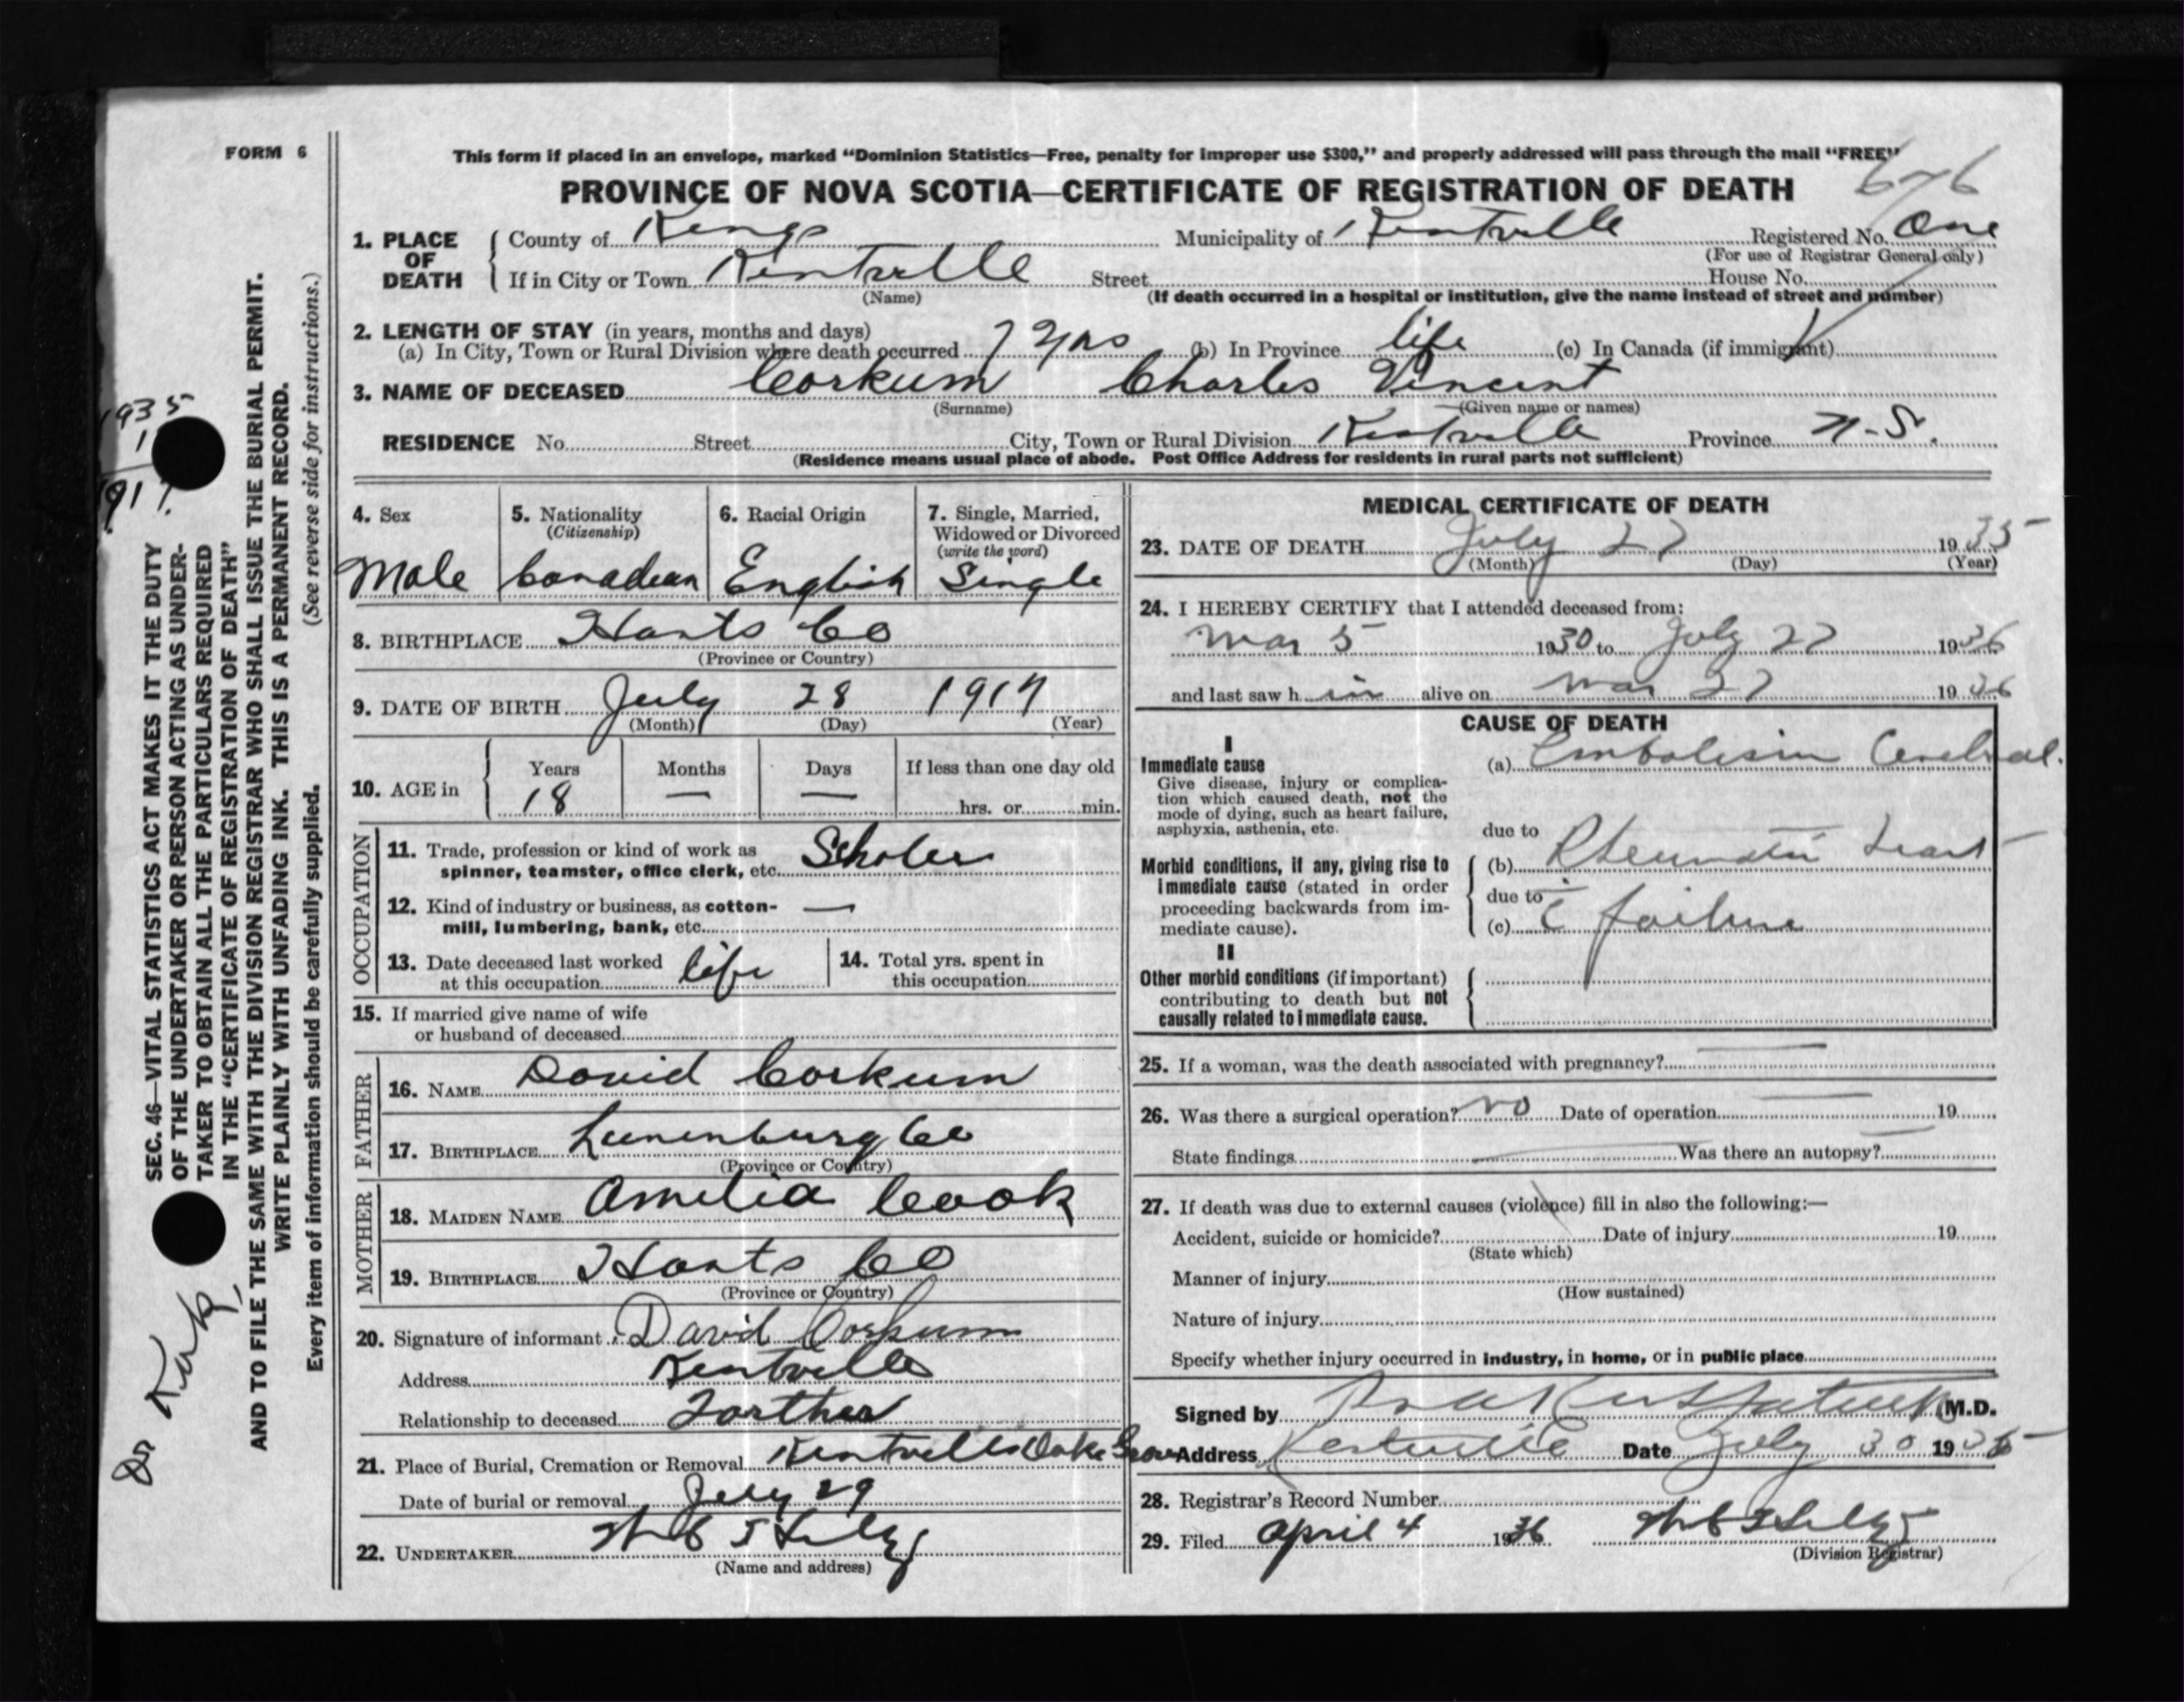 FORM 6
This form if placed in an envelope, marked “Dominion Statistics—Free, penalty for improper use $300,” and properly addressed will pass through the mail “FREE”
PROVINCE OF NOVA SCOTIA—CERTIFICATE OF REGISTRATION OF DEATH
1. PLACE OF DEATH County of Kings Municipality of Kentville Registered No. One
(For use of Registrar General only)
If in City or Town Kentville Street House No.
(Name) (If death occurred in a hospital or institution, give the name instead of street and number)
2. LENGTH OF STAY (in years, months and days)
(a) In City, Town or Rural Division where death occurred 7 yrs (b) In Province life (c) In Canada (if immigrant)
3. NAME OF DECEASED Corkum Charles Vincent
(Surname) (Given name or names)
RESIDENCE No. Street City, Town or Rural Division Kentville Province N.S.
(Residence means usual place of abode. Post Office Address for residents in rural parts not sufficient)
4. Sex Male
5. Nationality (Citizenship) Canadian
6. Racial Origin English
7. Single, Married, Widowed or Divorced (write the word) Single
8. BIRTHPLACE Hants Co
(Province or Country)
9. DATE OF BIRTH July 28 1917
(Month) (Day) (Year)
10. AGE in Years 18 Months — Days — If less than one day old
hrs. or min.
OCCUPATION
11. Trade, profession or kind of work as
spinner, teamster, office clerk, etc. Scholer
12. Kind of industry or business, as cotton- —
mill, lumbering, bank, etc.
13. Date deceased last worked
at this occupation life
14. Total yrs. spent in
this occupation
15. If married give name of wife
or husband of deceased
FATHER
16. NAME David Corkum
17. BIRTHPLACE Lunenburg Co
(Province or Country)
MOTHER
18. MAIDEN NAME Amelia Cook
19. BIRTHPLACE Hants Co
(Province or Country)
20. Signature of informant David Corkum
Address Kentville
Relationship to deceased Farther
21. Place of Burial, Cremation or Removal Kentville Oake Grove
Date of burial or removal July 29
22. UNDERTAKER
(Name and address)
MEDICAL CERTIFICATE OF DEATH
23. DATE OF DEATH July 27 1935
(Month) (Day) (Year)
24. I HEREBY CERTIFY that I attended deceased from:
Mar 5 1930 to July 27 1936
and last saw h im alive on Mar 27 1936
CAUSE OF DEATH
I
Immediate cause (a) Embolism Cerebral.
Give disease, injury or complica-
tion which caused death, not the
mode of dying, such as heart failure,
asphyxia, asthenia, etc.
due to
Morbid conditions, if any, giving rise to (b) Rheumatic heart
immediate cause (stated in order
proceeding backwards from im- due to
mediate cause). (c) c̄ failure
II
Other morbid conditions (if important)
contributing to death but not
causally related to immediate cause.
25. If a woman, was the death associated with pregnancy? —
26. Was there a surgical operation? no Date of operation — 19
State findings Was there an autopsy?
27. If death was due to external causes (violence) fill in also the following:—
Accident, suicide or homicide? Date of injury 19
(State which)
Manner of injury
(How sustained)
Nature of injury
Specify whether injury occurred in industry, in home, or in public place
Signed by M.D.
Address Kentville Date July 30 1936
28. Registrar's Record Number
29. Filed April 4 1936
(Division Registrar)
SEC. 46—VITAL STATISTICS ACT MAKES IT THE DUTY
OF THE UNDERTAKER OR PERSON ACTING AS UNDER-
TAKER TO OBTAIN ALL THE PARTICULARS REQUIRED
IN THE “CERTIFICATE OF REGISTRATION OF DEATH”
AND TO FILE THE SAME WITH THE DIVISION REGISTRAR WHO SHALL ISSUE THE BURIAL PERMIT.
WRITE PLAINLY WITH UNFADING INK. THIS IS A PERMANENT RECORD.
Every item of information should be carefully supplied. (See reverse side for instructions.)